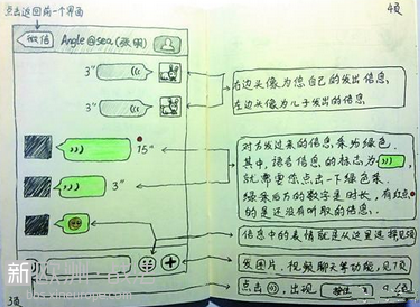 点击返回前一个界面
4页
微信
Angle@sea(张明)
3"
3"
15"
3"
右边头像为您自己的发出信息、
左边头像为儿子发出的信息
对方发过来的信息条为绿色.
其中,语音信息的标志为
就需要您点击一下绿色条.
绿条后方的数字是时长,有红点
的是还没有听取的信息.
信息中的表情就是从这里选择见5页
发图片,视频聊天等功能,见7页
点击 出现 按住
3页
新